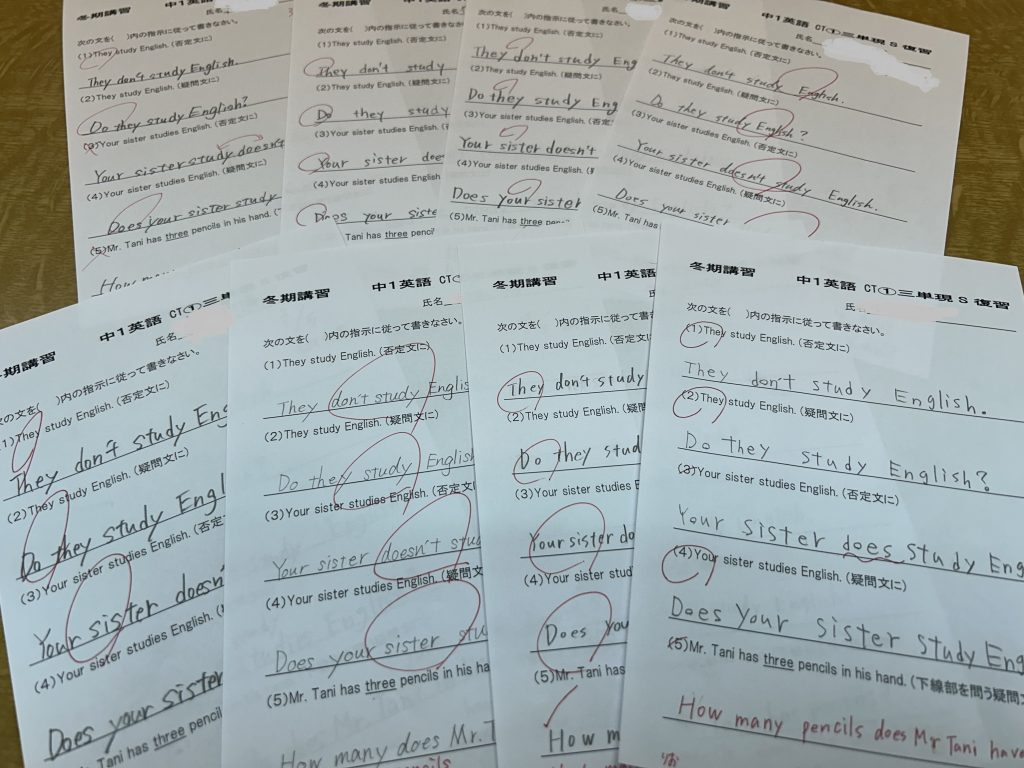 冬期講習
次の文を( )内の指示に従って書きなさい。
(1)They study English.(否定文に)
They don't study English.
(2)They study English.(疑問文に)
Do they study English?
(3)Your sister studies English.(否定文に)
Your sister study doesn't
(4)Your sister studies English.(疑問文に)
Does your sister study
(5)Mr. Tani has three pencils in his hand.
How many
中1英語
氏名
次の文を( )内の指示に従って書きなさい。
(1)They study English.(否定文に)
They don't study
(2)They study English.(疑問文に)
Do they study
(3)Your sister studies English.(否定文に)
Your sister
(4)Your sister studies English.(疑問文に)
Does your
Tani has three pencil
中1英語 CT
氏名
次の文を( )内の指示に従って書きなさい。
(1)They study English.(否定文に)
They don't study
(2)They study English.(疑問文に)
Do they study Eng
(3)Your sister studies English.(否定文に)
Your sister doesn't
(4)Your sister studies English.
Does your sister
(5)Mr. Tani has three
中1英語 CT①三単現 S 復習
氏名
次の文を( )内の指示に従って書きなさい。
(1)They study English.(否定文に)
They don't study English.
(2)They study English.(疑問文に)
Do they study English?
(3)Your sister studies English.(否定文に)
Your sister doesn't study English.
(4)Your sister studies English.(疑問文に)
Does your sister
冬期講習 中1英語 CT①三単現
氏名
次の文を( )内の指示に従って書きなさい。
(1)They study English.(否定文に)
They don't study
(2)They study English.(疑問文に)
Do they study Eng
(3)Your sister studies English.(否定文に)
Your sister doesn'
(4)Your sister studies English.
Does your sister
Tani has three pencil
冬期講習 中1英語 CT
氏名
次の文を( )内の指示に従って書きなさい。
(1)They study English.(否定文に)
They don't study
(2)They study English.(疑問文に)
Do they study English
(3)Your sister studies English.(否定文に)
Your sister doesn't
(4)Your sister studies English.(疑問文
Does your sister
(5)Mr. Tani has three pencils in his ha
How many does Mr. T
冬期講習 中1英語
氏名
次の文を( )内の指示に従って書きなさい。
(1)They study English.(否定文に)
They don't study
(2)They study English.(疑問文に)
Do they stud
(3)Your sister studies E
Your sister do
(4)Your sister studies
Does you
(5)Mr. Tani has three
How m
冬期講習 中1英語 CT①三単現 S 復習
氏
次の文を( )内の指示に従って書きなさい。
(1)They study English.(否定文に)
They don't study English.
(2)They study English.(疑問文に)
Do they study English?
(3)Your sister studies English.(否定文に)
Your sister does study Eng
(4)Your sister studies English.(疑問文に)
Does Your sister study Eng
(5)Mr. Tani has three pencils in his hand.(下線部を問う疑問
How many pencils does Mr Tani have